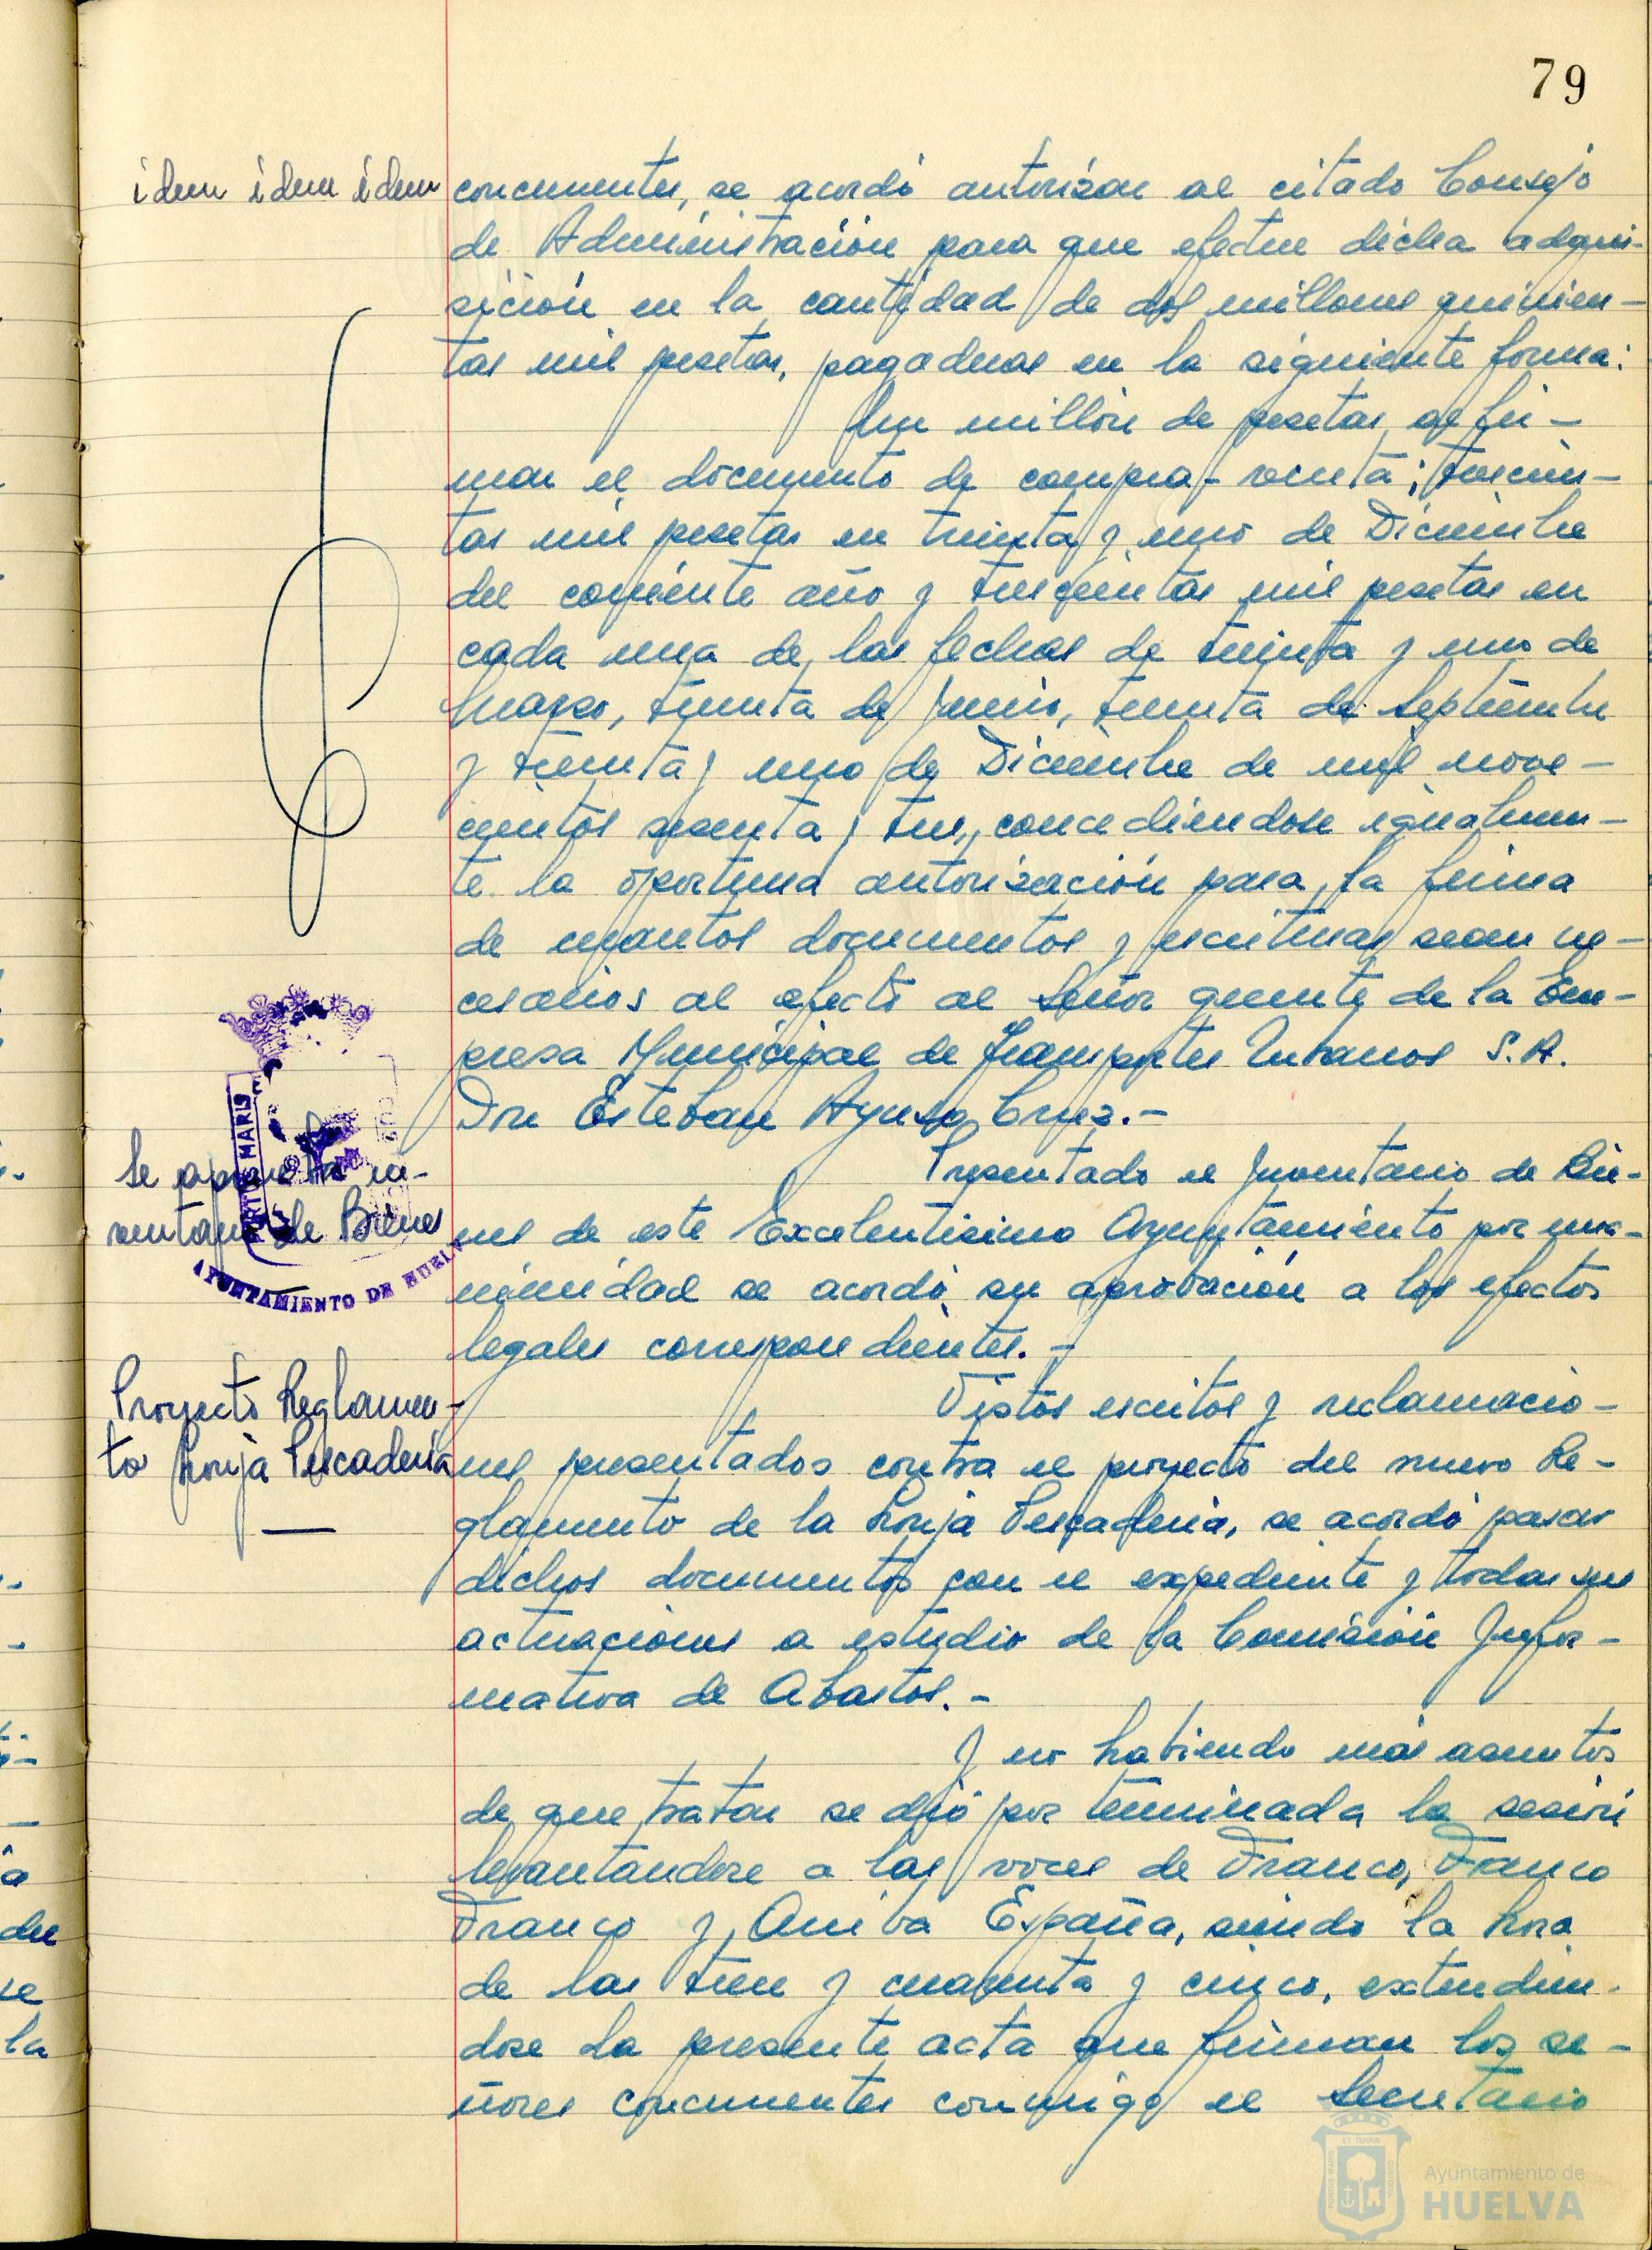 79
idem idem idem
concurrentes, se acordó autorizar al citado Consejo
de Administración para que efectue dicha adqui-
sición en la cantidad de dos millones quinien-
tas mil pesetas, pagaderas en la siguiente forma:
Un millón de pesetas al fir-
mar el documento de compra-venta; trescien-
tas mil pesetas en treinta y uno de Diciembre
del corriente año y trescientas mil pesetas en
cada una de las fechas de treinta y uno de
Marzo, treinta de Junio, treinta de Septiembre
y treinta y uno de Diciembre de mil nove-
cientos sesenta y tres, concediendose igualmen-
te la oportuna autorización para la firma
de cuantos documentos y escrituras sean ne-
cesarios al efecto al Señor gerente de la Em-
presa Municipal de Transportes Urbanos S.A.
Don Esteban Ayuso Cruz.-
Se aprueba in-
ventario de Bienes
PORTUS MARIS
CUS
AYUNTAMIENTO DE HUELVA
Presentado el Inventario de Bie-
nes de este Excelentisimo Ayuntamiento por una-
nimidad se acordó su aprobación a los efectos
legales correspondientes.-
Proyecto Reglamen-
to Lonja Pescaderia
Vistos escritos y reclamacio-
nes presentados contra el proyecto del nuevo Re-
glamento de la Lonja Pescaderia, se acordó pasar
dichos documentos con el expediente y todas sus
actuaciones a estudio de la Comisión Infor-
mativa de Abastos.-
Y no habiendo más asuntos
de que tratar se dió por terminada la sesión
levantandose a las voces de Franco, Franco
Franco y Arriba España, siendo la hora
de las trece y cuarenta y cinco, extendien-
dose la presente acta que firman los se-
ñores concurrentes conmigo el Secretario
Ayuntamiento de
HUELVA